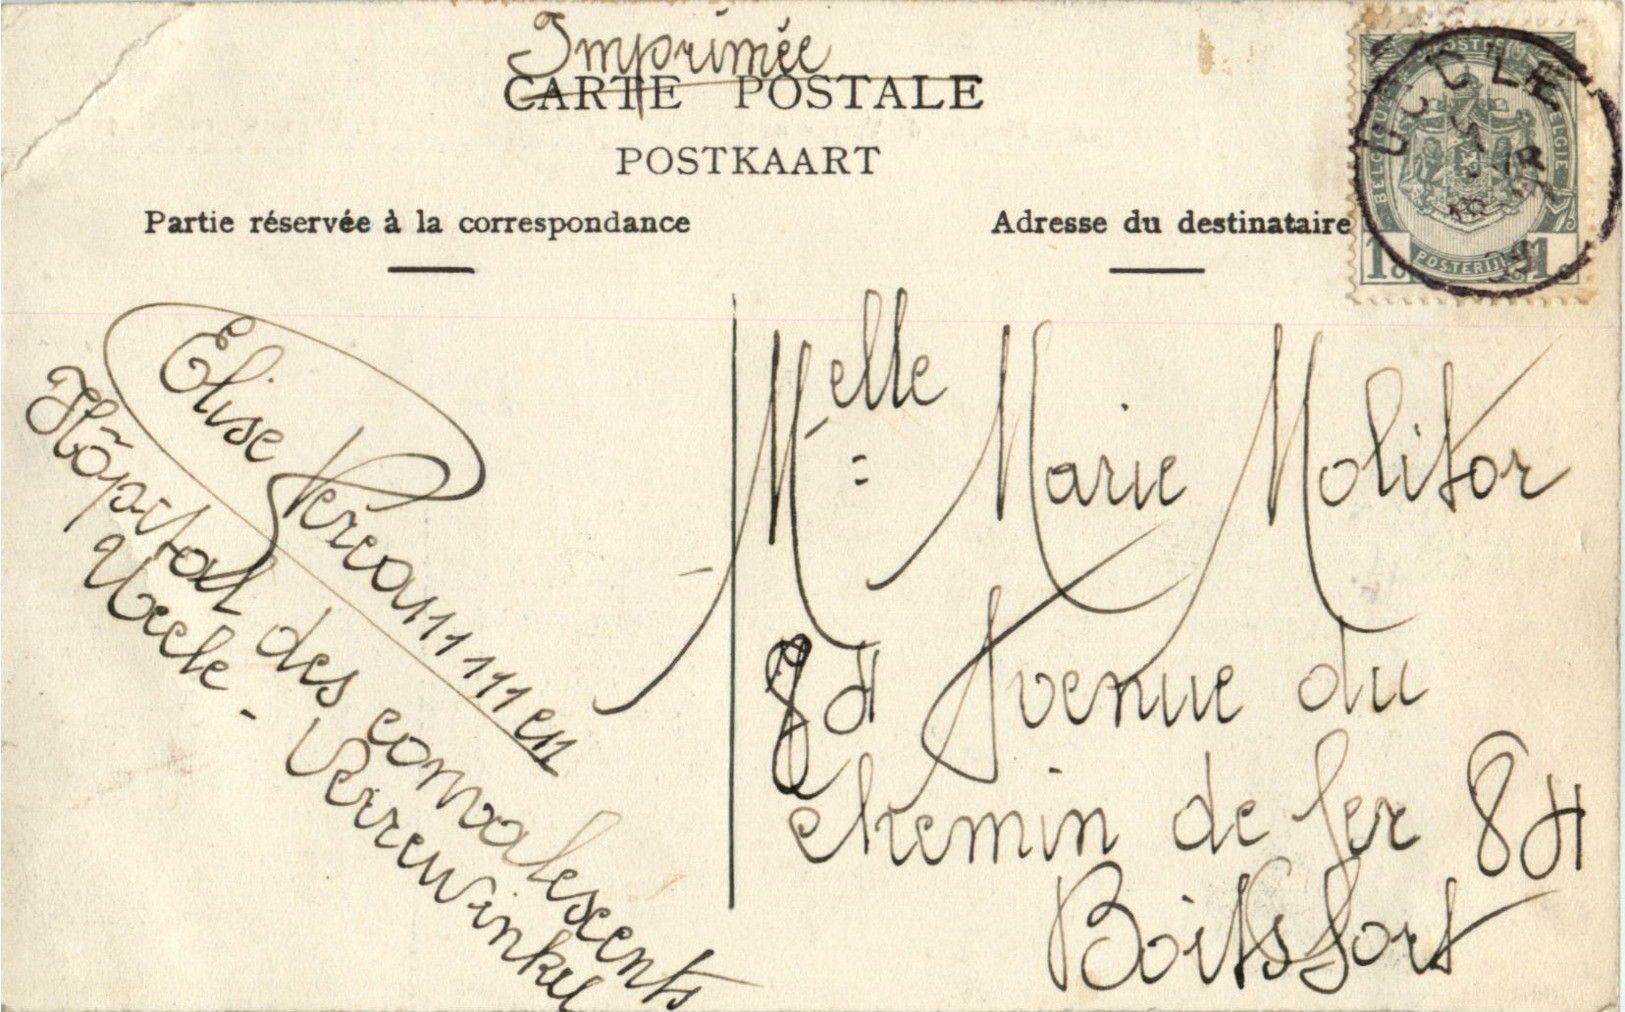 Imprimée
CARTE POSTALE
POSTKAART
Partie réservée à la correspondance
Adresse du destinataire
UCCLE
BELGIQUE POSTES BELGIE
1 POSTERIJEN 1
Elise
Hôpital des convalescents
Uccle - Verrewinkel
Melle Marie Molitor
84 Avenue du
chemin de fer 84
Boitsfort